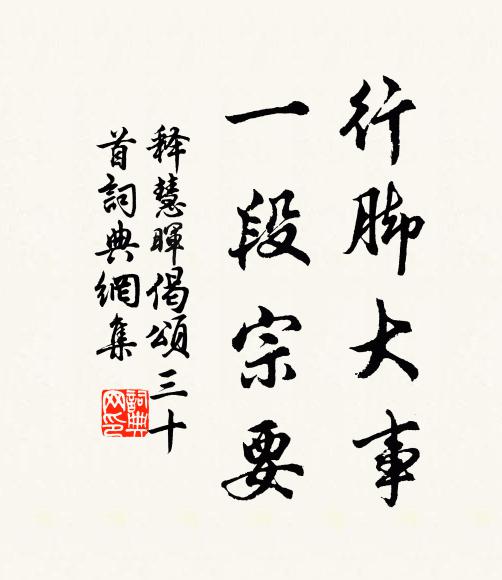 行脚大事
一段宗要
释慧暉偈頌三十
首詞典網集
詞典
网印